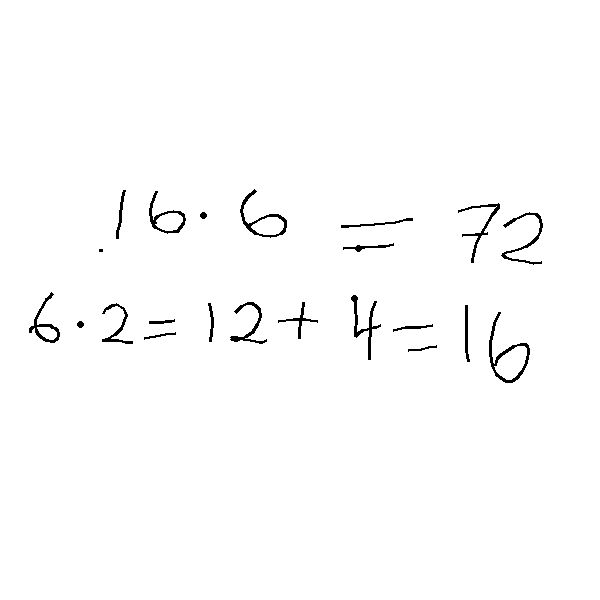 16 · 6 = 72
6 · 2 = 12 + 4 = 16